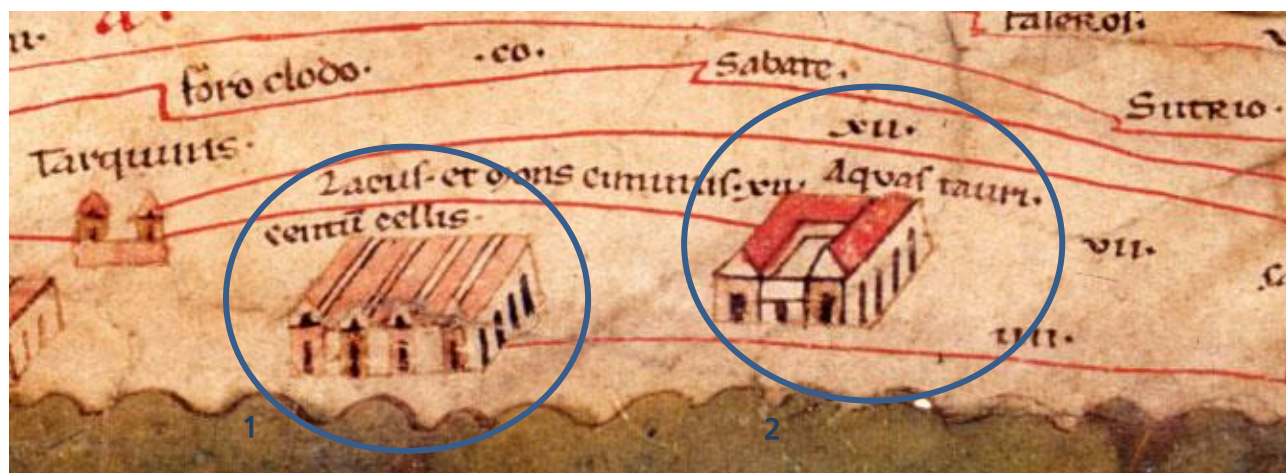 taleros.
foro clodo. .co. Sabate.
Sutrio.
Tarquinis.
XII.
Lacus. et mons ciminus. XII. Aquas tauri.
centu cellis.
VII.
IIII.
1
2